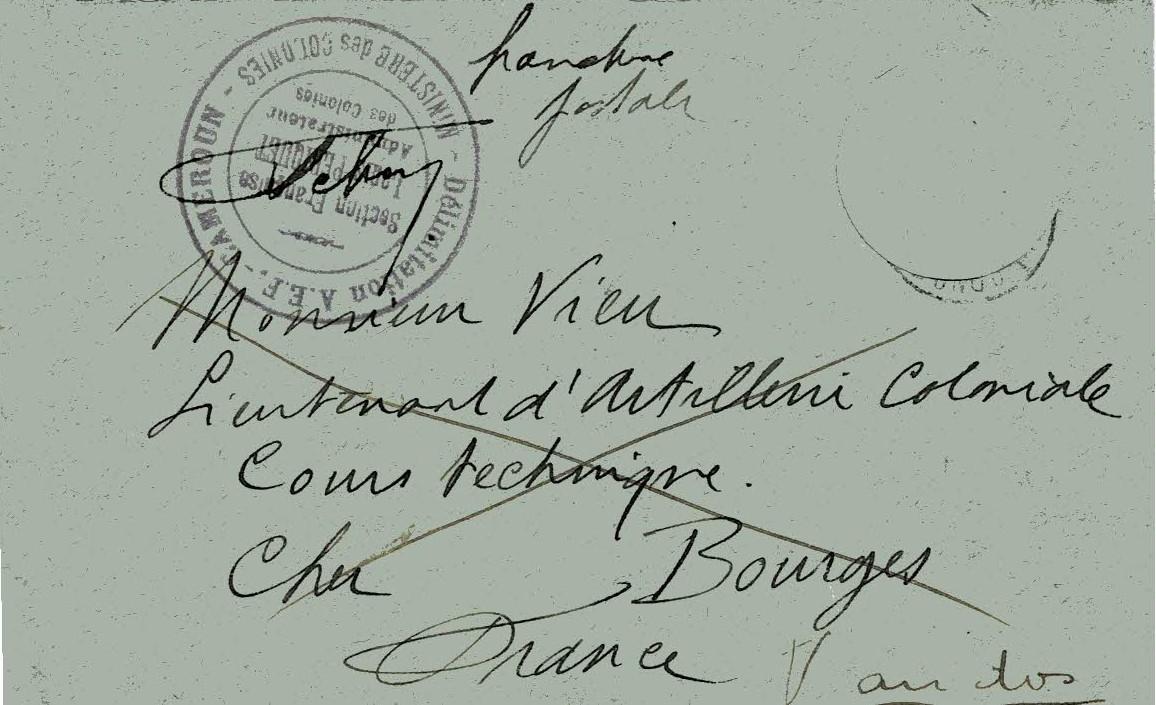 franchise
postale
MINISTÈRE des COLONIES
Délimitation A.E.F. - CAMEROUN -
Section Française
Administrateur
des Colonies
Monsieur Vieu
Lieutenant d'Artillerie Coloniale
Cours technique.
Cher Bourges
France
au dos